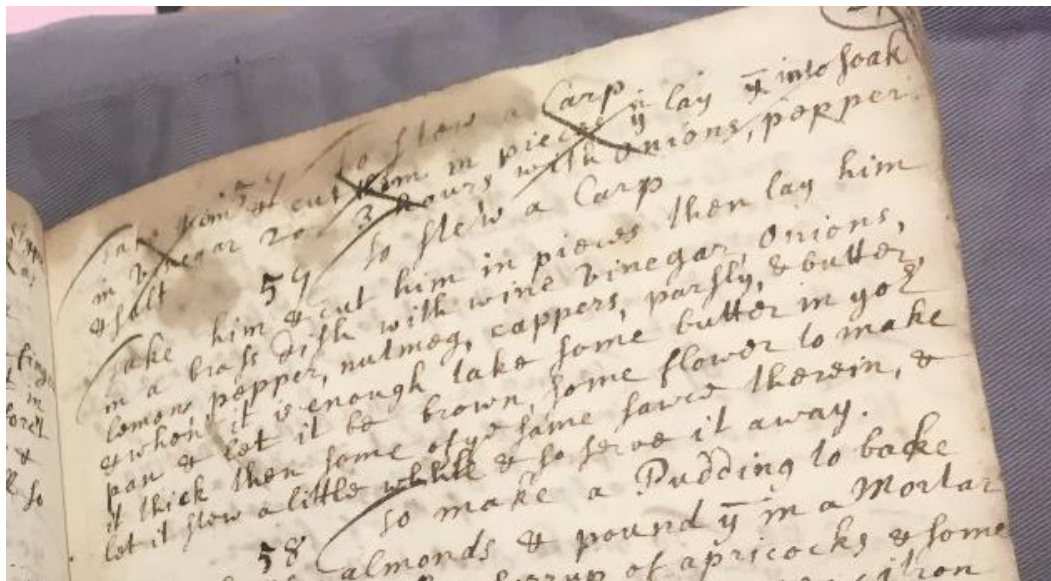 To stew a Carp
Take him & cut him in pieces yn lay ym into soak
in vinegar 2 or 3 hours with onions, pepper
& salt
57 To stew a Carp
Take him & cut him in pieces then lay him
in a brass dish with wine vinegar, Onions,
lemon, pepper, nutmeg, cappers, parsly, & butter,
& when it is enough take some butter in yor
pan & let it be brown, some flower to make
it thick then some of ye same sawce therein, &
let it stew a little while & so serve it away.
58 To make a Pudding to bake
almonds & pound ym in a Mortar
of apricocks & some